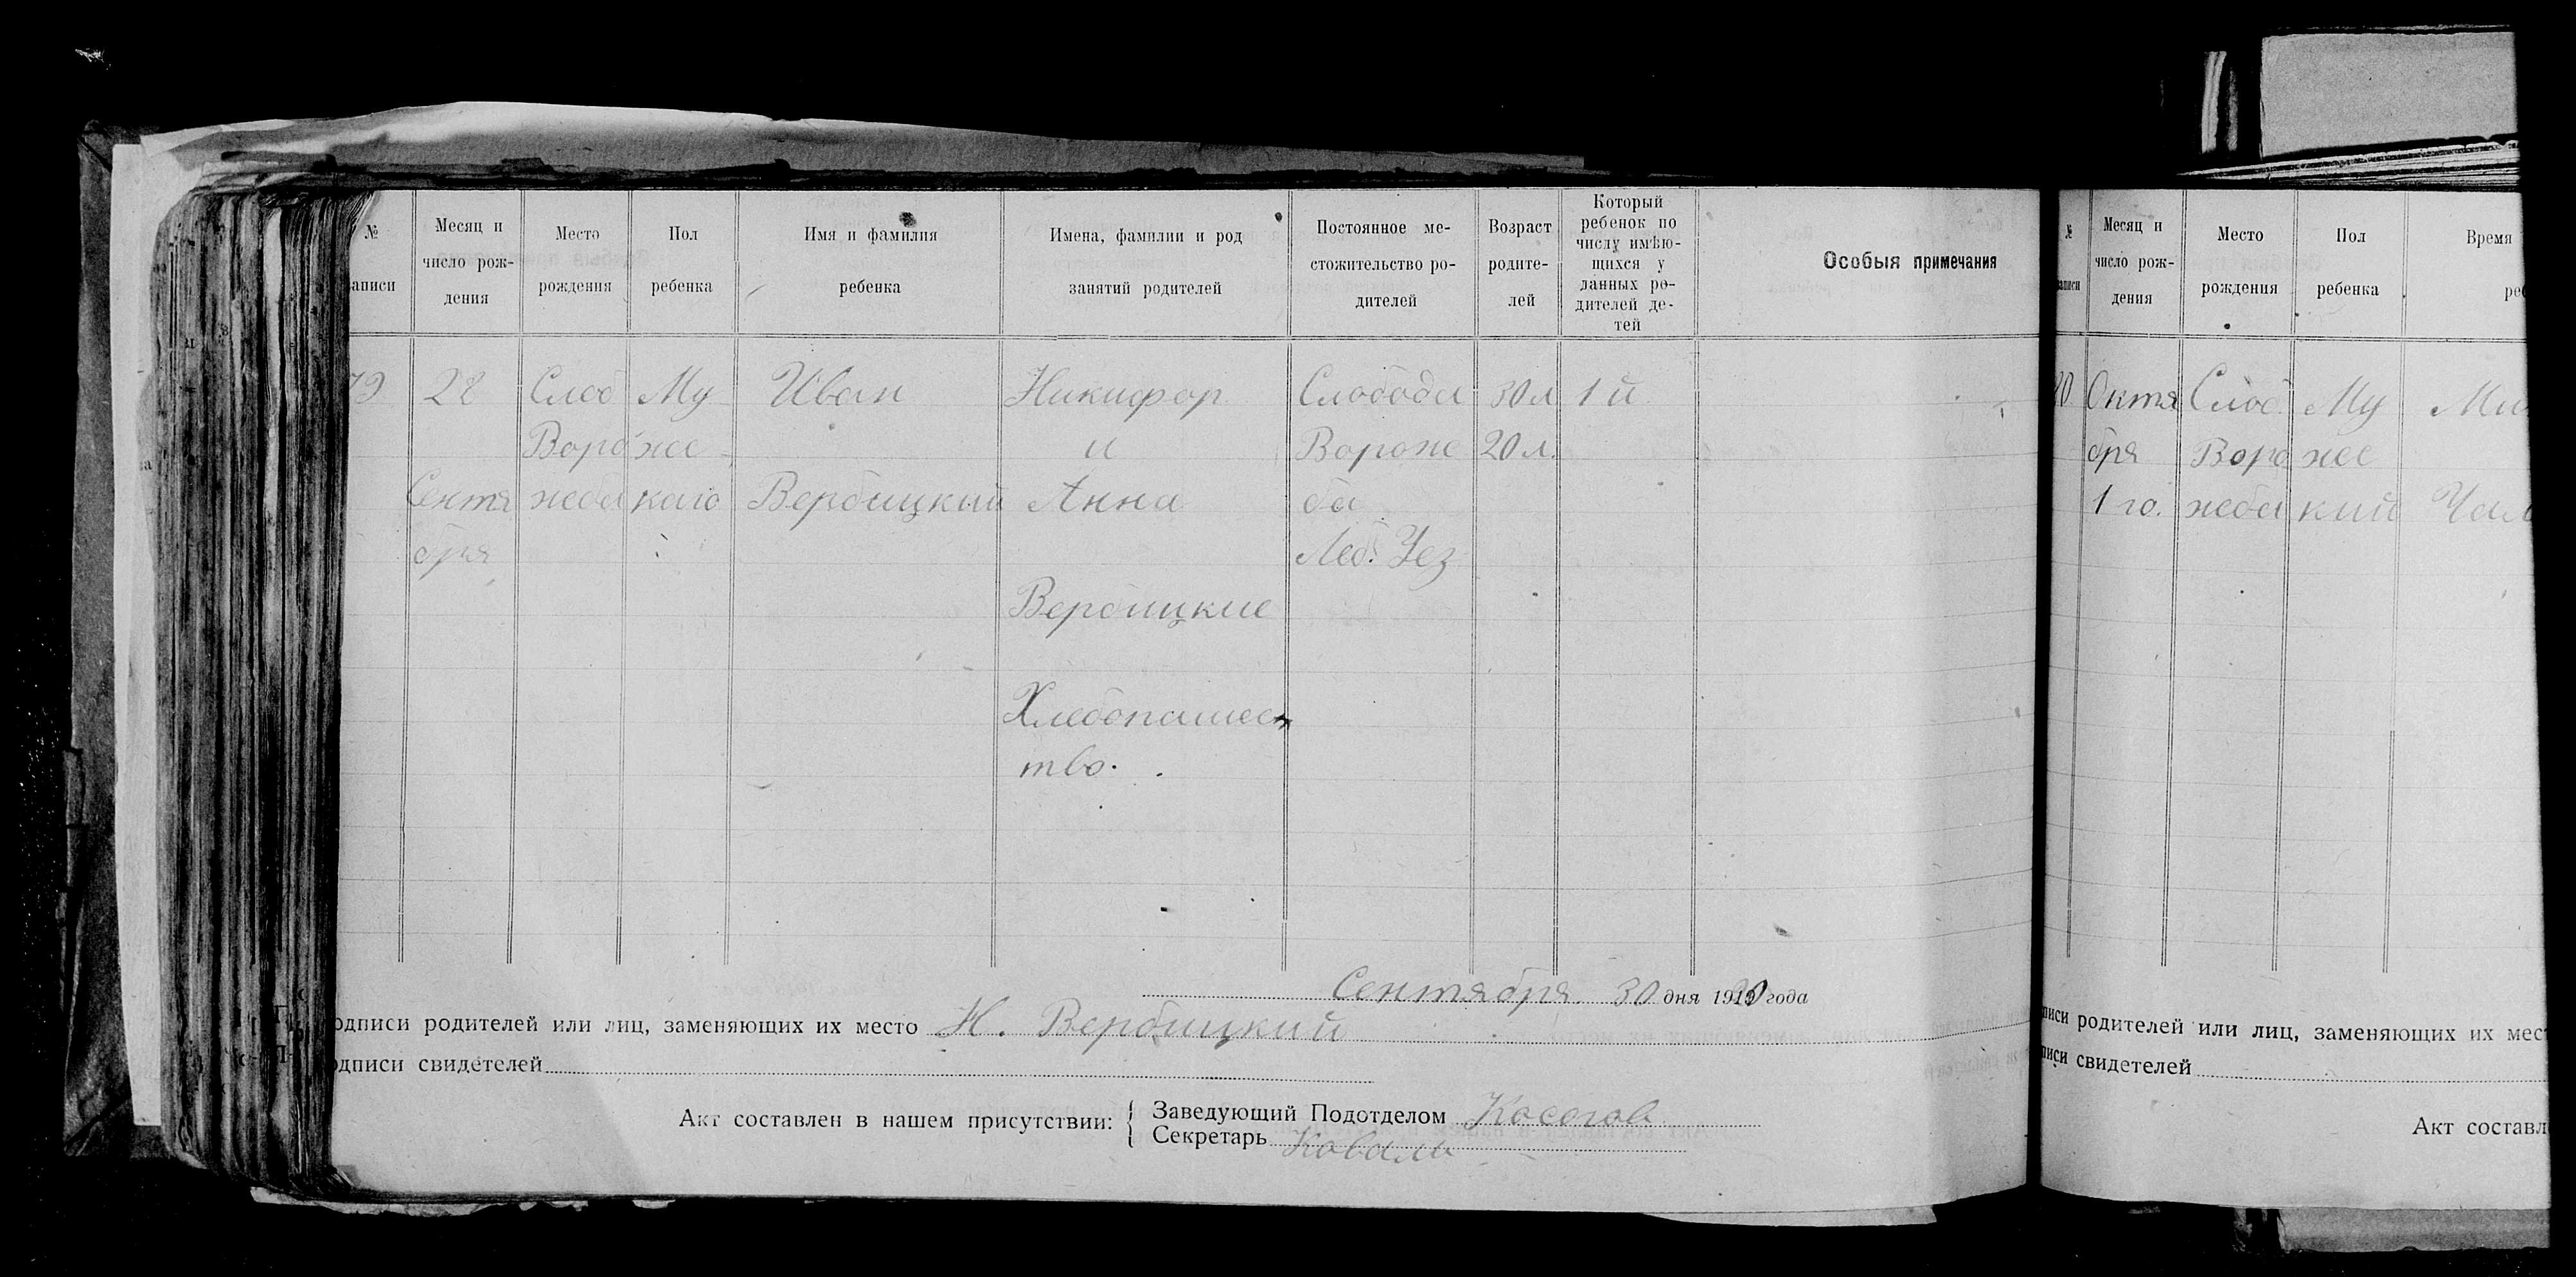 № аписи
Месяц и число рож-дения
Место рождения
Пол ребенка
Имя и фамилия ребенка
Имена, фамилии и род занятий родителей
Постоянное ме-стожительство ро-дителей
Возраст родите-лей
Который ребенок по числу имѣю-щихся у данных ро-дителей де-тей
Особыя примечания
79 28 Слоб Му Иван Никифор Слобода 30 л 1 й
Воро жс и Вороже 20 л.
Сентя жба кого Вербицкий Анна ба
бря Леб. Уез
Вербицкие
Хлебопашес
тво.
Сентября 30 дня 1920 года
одписи родителей или лиц, заменяющих их место Н. Вербицкий
одписи свидетелей
Акт составлен в нашем присутствии: { Заведующий Подотделом Косогов
Секретарь Коваль
№ аписи
Месяц и число рож-дения
Место рождения
Пол ребенка
Время
ре
80 Октя Слоб. Му
бря Воро жс
1 го. жба кий
писи родителей или лиц, заменяющих их мес
писи свидетелей
Акт составл